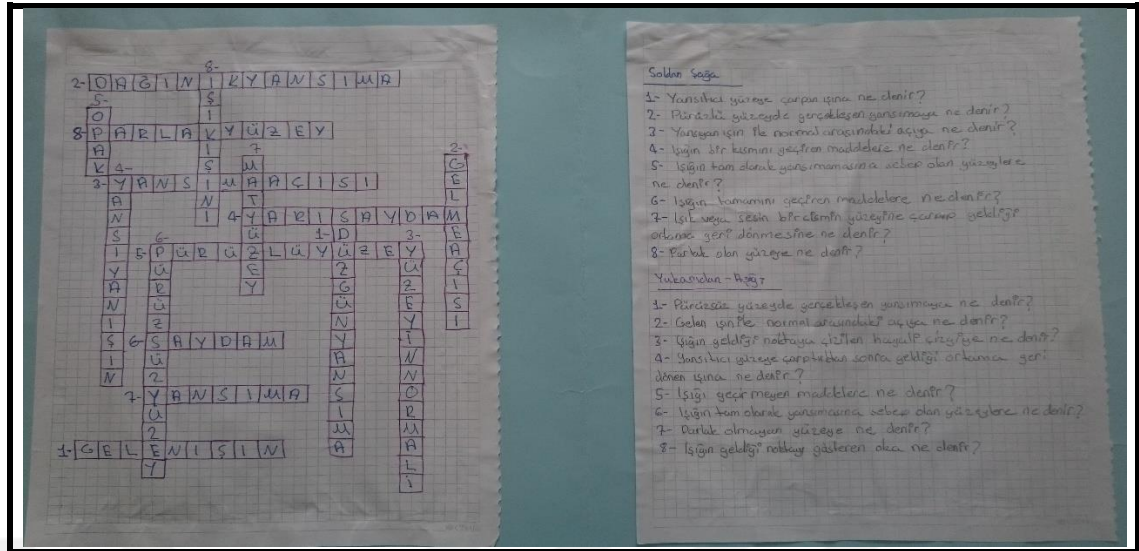 8-
2- DAĞINIKYANSIMA
5-
8- PARLAKYÜZEY
7
2-
4-
3- YANSIMAAÇISI
4- YARISAYDAM
6-
1-
3-
5- PÜRÜZLÜYÜZEY
6- SAYDAM
7- YANSIMA
1- GELENIŞIN
OPAK
IŞIKIŞINI
MATYÜZEY
GELMEAÇISI
YANSIYANIŞIN
PÜRÜZSÜZYÜZEY
DÜZGÜNYANSIMA
YÜZEYİNNORMALİ
Soldan Sağa
1- Yansıtıcı yüzeye çarpan ışına ne denir?
2- Pürüzlü yüzeyde gerçekleşen yansımaya ne denir?
3- Yansıyan ışın ile normal arasındaki açıya ne denir?
4- Işığın bir kısmını geçiren maddelere ne denir?
5- Işığın tam olarak yansımamasına sebep olan yüzeylere
ne denir?
6- Işığın tamamını geçiren maddelere ne denir?
7- Işık veya sesin bir cismin yüzeyine çarpıp geldiği
ortama geri dönmesine ne denir?
8- Parlak olan yüzeye ne denir?
Yukarıdan-Aşağı
1- Pürüzsüz yüzeyde gerçekleşen yansımaya ne denir?
2- Gelen ışın ile normal arasındaki açıya ne denir?
3- Işığın geldiği noktaya çizilen hayali çizgiye ne denir?
4- Yansıtıcı yüzeye çarptıktan sonra geldiği ortama geri
dönen ışına ne denir?
5- Işığı geçirmeyen maddelere ne denir?
6- Işığın tam olarak yansımasına sebep olan yüzeylere ne denir?
7- Parlak olmayan yüzeye ne denir?
8- Işığın geldiği noktayı gösteren oka ne denir?